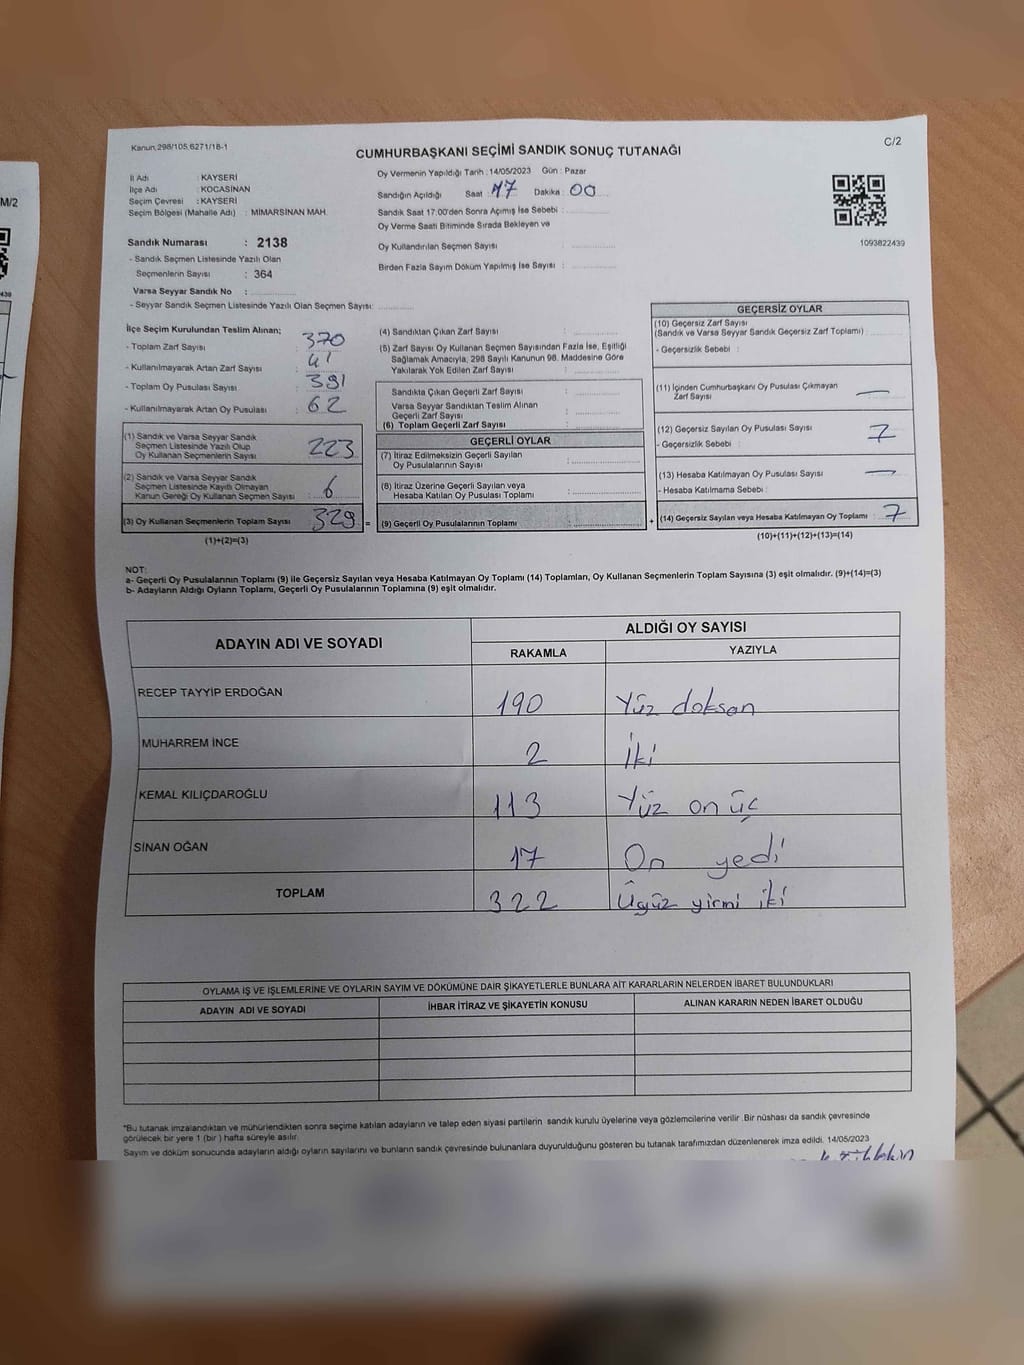 Kanun, 298/105,6271/18-1
C/2
CUMHURBAŞKANI SEÇİMİ SANDIK SONUÇ TUTANAĞI
İl Adı : KAYSERİ
İlçe Adı : KOCASİNAN
Seçim Çevresi : KAYSERİ
Seçim Bölgesi (Mahalle Adı) : MİMARSİNAN MAH.
Sandık Numarası : 2138
- Sandık Seçmen Listesinde Yazılı Olan
Seçmenlerin Sayısı : 364
Varsa Seyyar Sandık No :
- Seyyar Sandık Seçmen Listesinde Yazılı Olan Seçmen Sayısı:
Oy Vermenin Yapıldığı Tarih : 14/05/2023 Gün : Pazar
Sandığın Açıldığı Saat : 17 Dakika : 00
Sandık Saat 17.00'den Sonra Açımış İse Sebebi :
Oy Verme Saati Bitiminde Sırada Bekleyen ve
Oy Kullandırılan Seçmen Sayısı :
Birden Fazla Sayım Döküm Yapılmış İse Sayısı :
1093822439
M/2
439
İlçe Seçim Kurulundan Teslim Alınan;
- Toplam Zarf Sayısı : 370
- Kullanılmayarak Artan Zarf Sayısı : 41
- Toplam Oy Pusulası Sayısı : 391
- Kullanılmayarak Artan Oy Pusulası : 62
(1) Sandık ve Varsa Seyyar Sandık
Seçmen Listesinde Yazılı Olup
Oy Kullanan Seçmenlerin Sayısı : 223
(2) Sandık ve Varsa Seyyar Sandık
Seçmen Listesinde Kayıtlı Olmayan
Kanun Gereği Oy Kullanan Seçmen Sayısı : 6
(3) Oy Kullanan Seçmenlerin Toplam Sayısı : 329 =
(1)+(2)=(3)
(4) Sandıktan Çıkan Zarf Sayısı :
(5) Zarf Sayısı Oy Kullanan Seçmen Sayısından Fazla İse, Eşitliği
Sağlamak Amacıyla, 298 Sayılı Kanunun 98. Maddesine Göre
Yakılarak Yok Edilen Zarf Sayısı :
Sandıkta Çıkan Geçerli Zarf Sayısı :
Varsa Seyyar Sandıktan Teslim Alınan
Geçerli Zarf Sayısı :
(6) Toplam Geçerli Zarf Sayısı :
GEÇERLİ OYLAR
(7) İtiraz Edilmeksizin Geçerli Sayılan
Oy Pusulalarının Sayısı :
(8) İtiraz Üzerine Geçerli Sayılan veya
Hesaba Katılan Oy Pusulası Toplamı :
(9) Geçerli Oy Pusulalarının Toplamı : +
GEÇERSİZ OYLAR
(10) Geçersiz Zarf Sayısı
(Sandık ve Varsa Seyyar Sandık Geçersiz Zarf Toplamı) :
- Geçersizlik Sebebi :
(11) İçinden Cumhurbaşkanı Oy Pusulası Çıkmayan
Zarf Sayısı : —
(12) Geçersiz Sayılan Oy Pusulası Sayısı : 7
- Geçersizlik Sebebi :
(13) Hesaba Katılmayan Oy Pusulası Sayısı : —
- Hesaba Katılmama Sebebi :
(14) Geçersiz Sayılan veya Hesaba Katılmayan Oy Toplamı : 7
(10)+(11)+(12)+(13)=(14)
NOT:
a- Geçerli Oy Pusulalarının Toplamı (9) ile Geçersiz Sayılan veya Hesaba Katılmayan Oy Toplamı (14) Toplamları, Oy Kullanan Seçmenlerin Toplam Sayısına (3) eşit olmalıdır. (9)+(14)=(3)
b- Adayların Aldığı Oyların Toplamı, Geçerli Oy Pusulalarının Toplamına (9) eşit olmalıdır.
ADAYIN ADI VE SOYADI
ALDIĞI OY SAYISI
RAKAMLA YAZIYLA
RECEP TAYYİP ERDOĞAN 190 Yüz doksan
MUHARREM İNCE 2 İki
KEMAL KILIÇDAROĞLU 113 Yüz on üç
SİNAN OĞAN 17 On yedi
TOPLAM 322 Üçyüz yirmi iki
OYLAMA İŞ VE İŞLEMLERİNE VE OYLARIN SAYIM VE DÖKÜMÜNE DAİR ŞİKAYETLERLE BUNLARA AİT KARARLARIN NELERDEN İBARET BULUNDUKLARI
ADAYIN ADI VE SOYADI İHBAR İTİRAZ VE ŞİKAYETİN KONUSU ALINAN KARARIN NEDEN İBARET OLDUĞU
*Bu tutanak imzalandıktan ve mühürlendikten sonra seçime katılan adayların ve talep eden siyasi partilerin sandık kurulu üyelerine veya gözlemcilerine verilir .Bir nüshası da sandık çevresinde
görülecek bir yere 1 (bir ) hafta süreyle asılır.
Sayım ve döküm sonucunda adayların aldığı oyların sayılarını ve bunların sandık çevresinde bulunanlara duyurulduğunu gösteren bu tutanak tarafımızdan düzenlenerek imza edildi. 14/05/2023